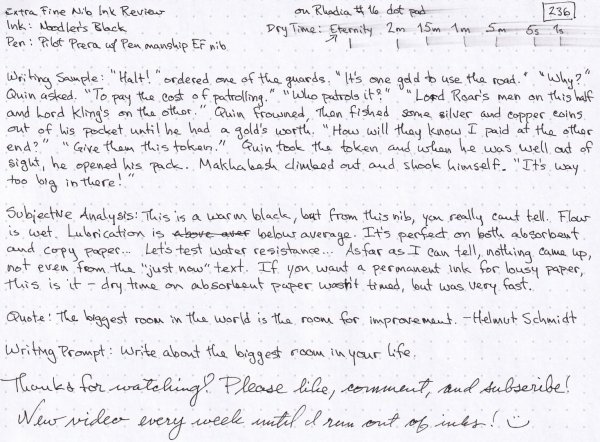 Extra Fine Nib Ink Review on Rhodia #16 dot pad 236
Ink: Noodler's Black Dry Time: Eternity 2m 15m 1m 5m 5s 1s
Pen: Pilot Prera w/ Penmanship EF nib
Writing Sample: "Halt!" ordered one of the guards. "It's one gold to use the road." "Why?"
Quin asked. "To pay the cost of patrolling." "Who patrols it?" "Lord Roar's men on this half
and Lord Kling's on the other." Quin frowned, then fished some silver and copper coins
out of his pocket until he had a gold's worth. "How will they know I paid at the other
end?" "Give them this token." Quin took the token and when he was well out of
sight, he opened his pack. Makhabesh climbed out and shook himself. "It's way
too big in there!"
Subjective Analysis: This is a warm black, but from this nib, you really cant tell. Flow
is wet. Lubrication is above aver below average. It's perfect on both absorbent
and copy paper... Let's test water resistance... As far as I can tell, nothing came up,
not even from the "just now" text. If you want a permanent ink for lousy paper,
this is it - dry time on absorbent paper wasn't timed, but was very fast.
Quote: The biggest room in the world is the room for improvement. -Helmut Schmidt
Writing Prompt: Write about the biggest room in your life.
Thanks for watching! Please like, comment, and subscribe!
New video every week until I run out of inks! :)